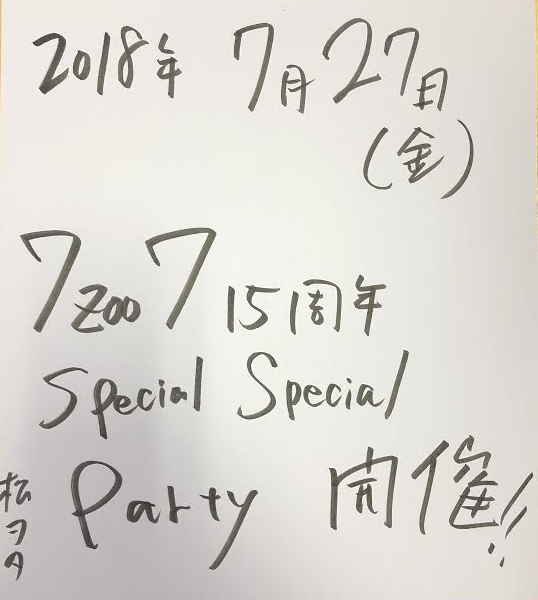 2018年 7月27日
(金)
7ZOO7 15周年
Special Special
Party 開催!!
松ヲタ